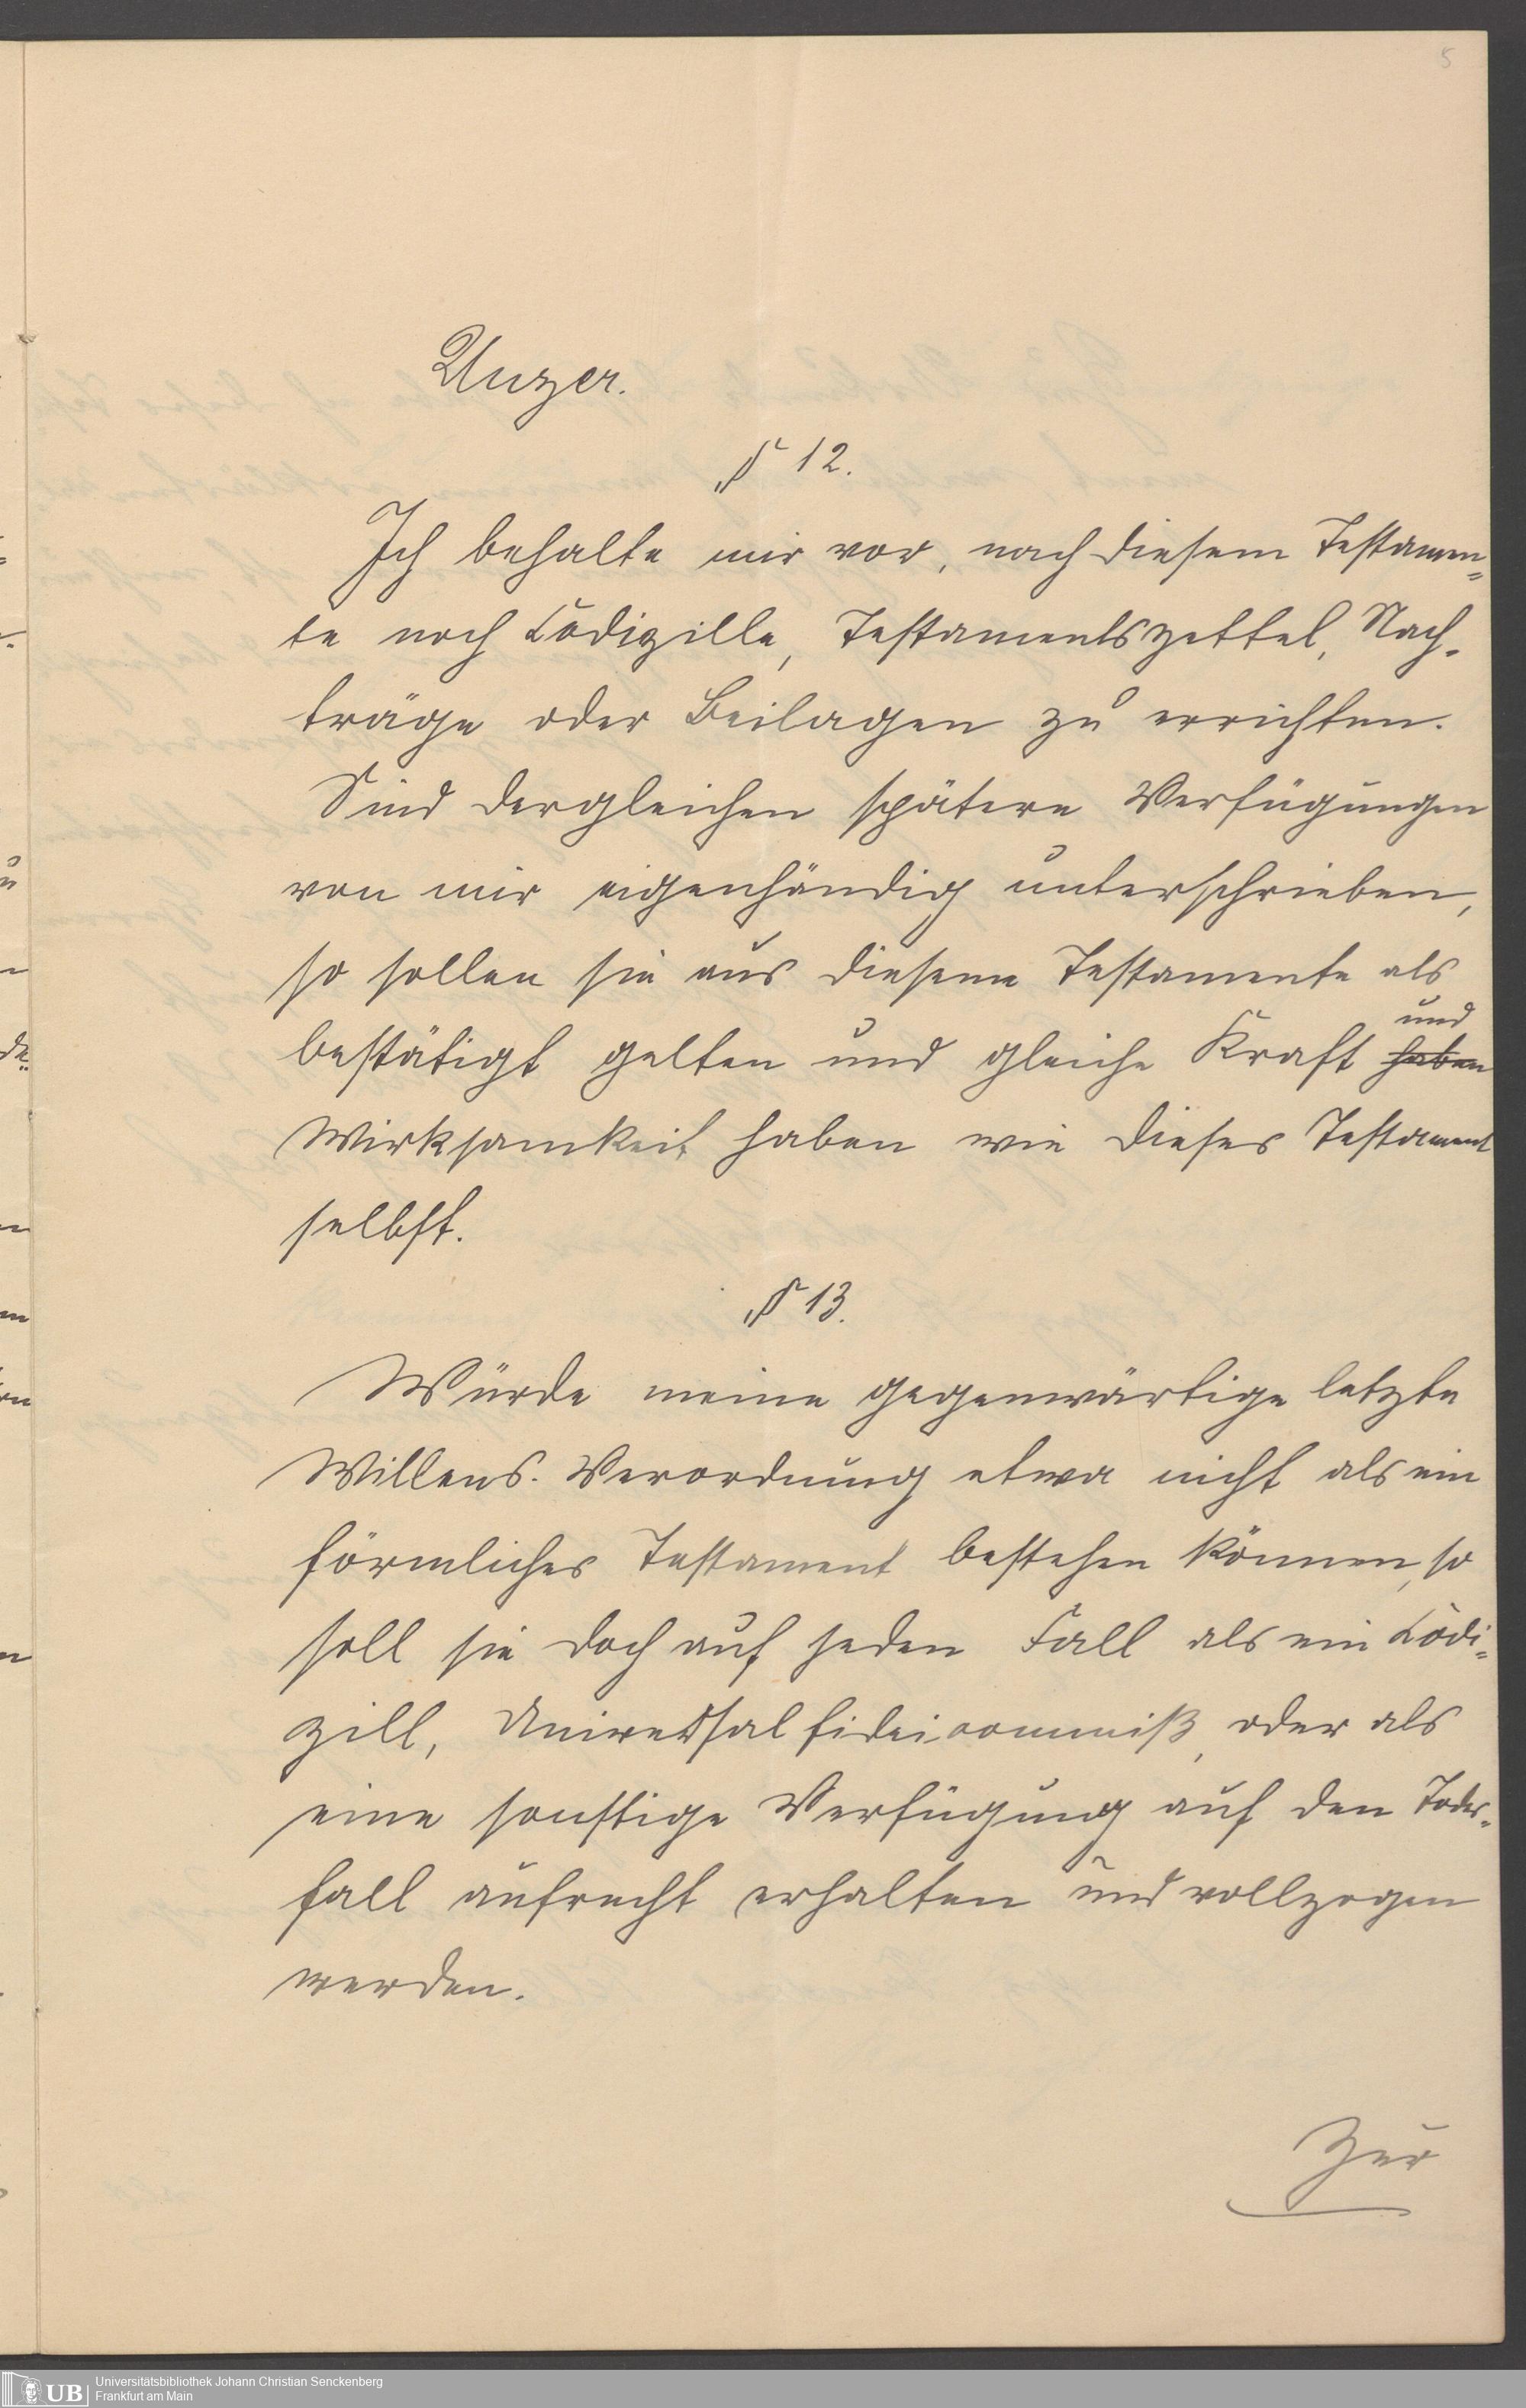 5
Unzer.
§ 12.
Ich behalte mir vor, nach diesem Testamen=
te noch Codizille, Testamentszettel, Nach-
träge oder Beilagen zu errichten.
Sind dergleichen spätere Verfügungen
von mir eigenhändig unterschrieben,
so sollen sie aus diesem Testamente als
bestätigt gelten und gleiche Kraft haben und
Wirksamkeit haben wie dieses Testament
selbst.
§ 13.
Würde meine gegenwärtige letzte
Willens-Verordnung etwa nicht als ein
förmliches Testament bestehen können, so
soll sie doch auf jeden Fall als ein Codi=
zill, Universalfideicommiß, oder als
eine sonstige Verfügung auf den Todes-
fall aufrecht erhalten und vollzogen
werden.
Zur
UB Universitätsbibliothek Johann Christian Senckenberg
Frankfurt am Main